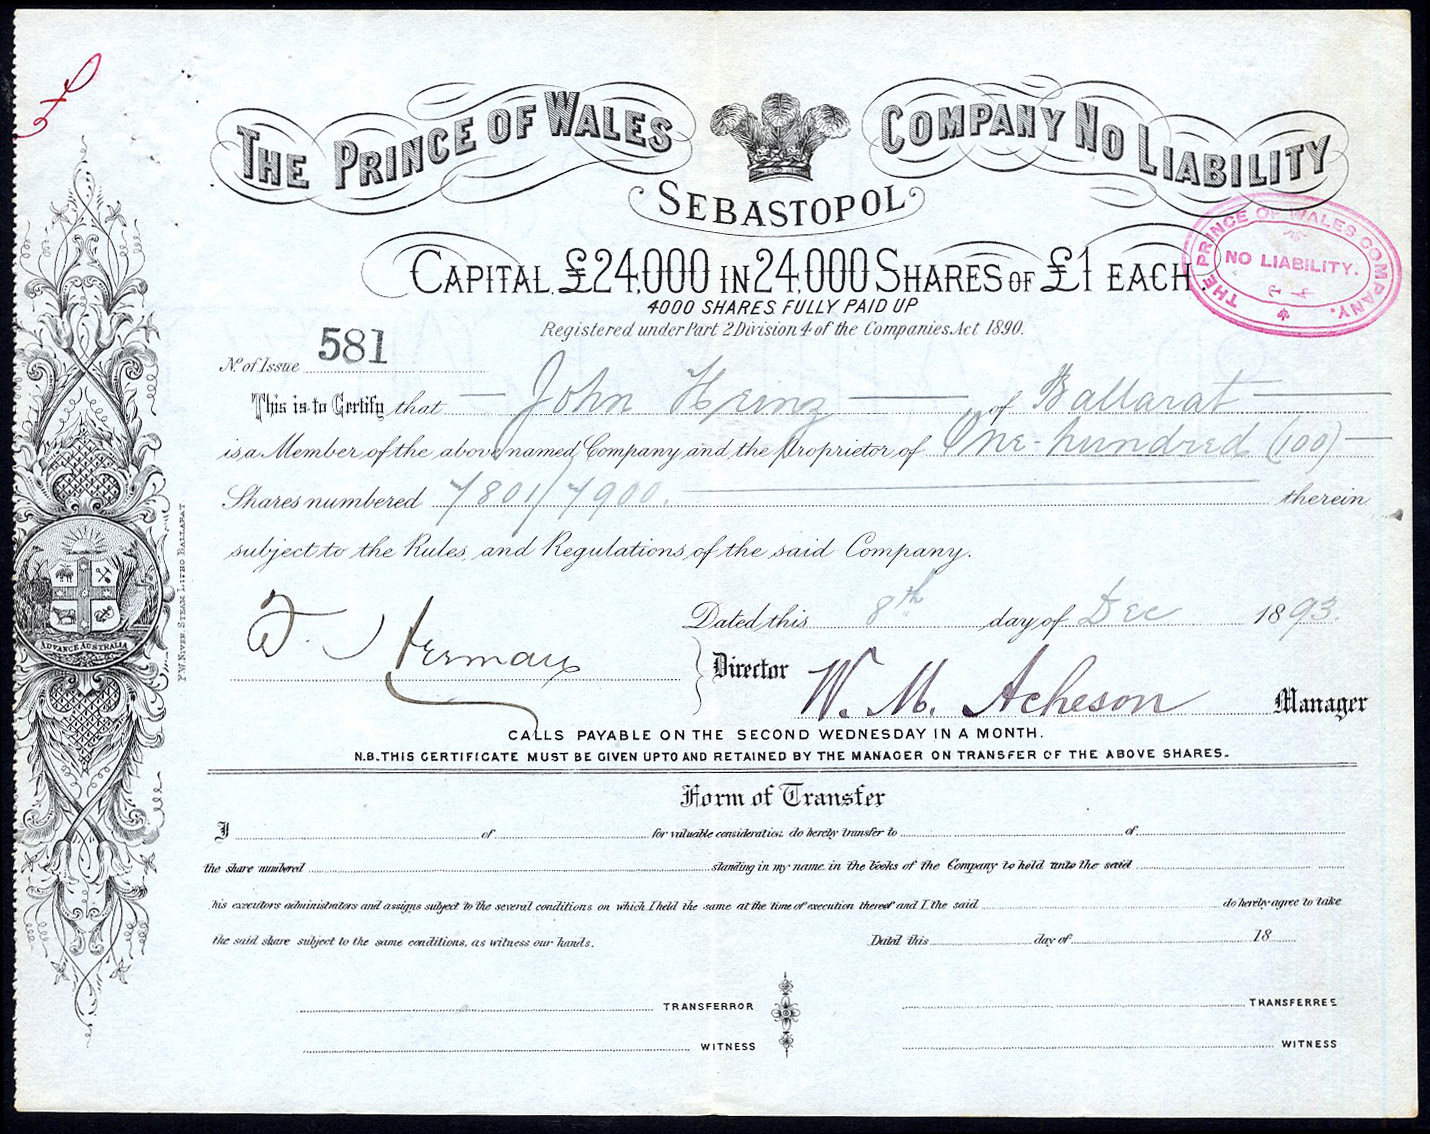 THE PRINCE OF WALES COMPANY NO LIABILITY
SEBASTOPOL
CAPITAL £24,000 IN 24,000 SHARES OF £1 EACH
4000 SHARES FULLY PAID UP
Registered under Part 2 Division 4 of the Companies Act 1890.
THE PRINCE OF WALES COMPANY.
NO LIABILITY.
No. of Issue 581
This is to Certify that John Heinz of Ballarat
is a Member of the above named Company and the Proprietor of One hundred (100)
Shares numbered 7801/7900. therein
subject to the Rules and Regulations of the said Company.
Dated this 8th day of Dec 1893.
Director W. M. Acheson Manager
CALLS PAYABLE ON THE SECOND WEDNESDAY IN A MONTH.
N.B. THIS CERTIFICATE MUST BE GIVEN UPTO AND RETAINED BY THE MANAGER ON TRANSFER OF THE ABOVE SHARES.
Form of Transfer
I of for valuable consideration do hereby transfer to of
the share numbered standing in my name in the books of the Company to hold unto the said
his executors administrators and assigns subject to the several conditions on which I held the same at the time of execution thereof and I the said do hereby agree to take
the said share subject to the same conditions, as witness our hands. Dated this day of 18
TRANSFERROR TRANSFEREE
WITNESS WITNESS
ADVANCE AUSTRALIA
F.W. NIVEN. STEAM LITHO BALLARAT